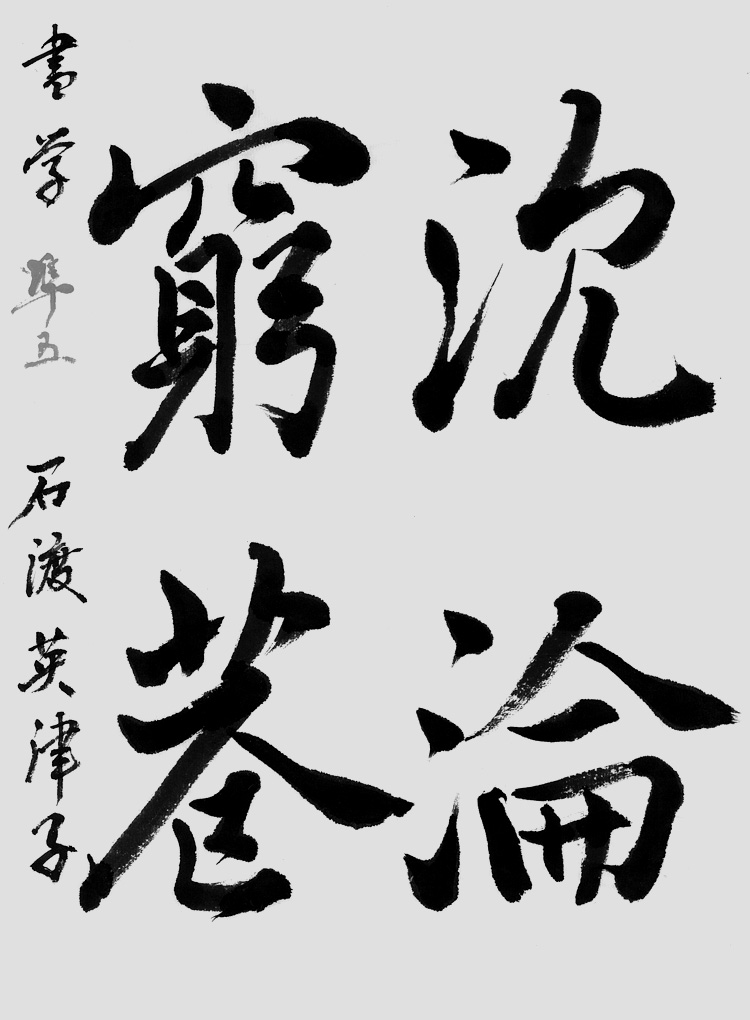 沈淪
窮巷
書学 準五 石渡英津子